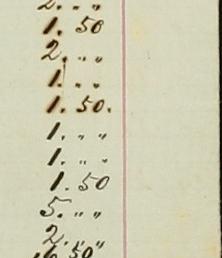 2. " "
1. 50
2. " "
1. " "
1. 50.
1. " "
1. " "
1. 50
5. " "
2. " "
16. 50